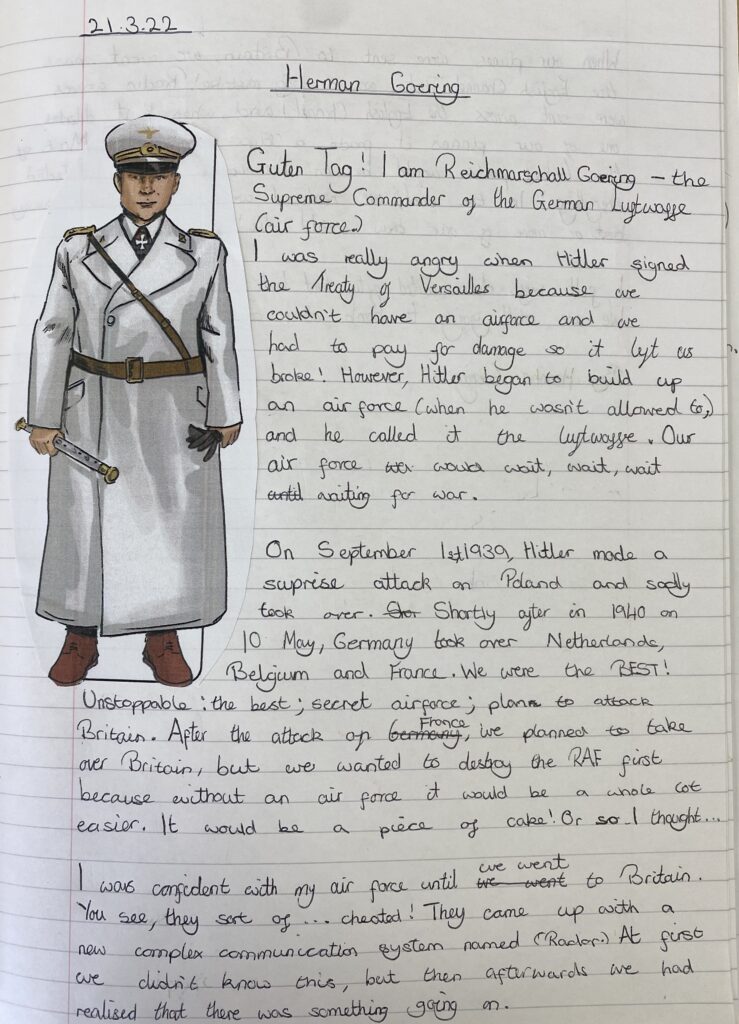 21.3.22
Herman Goering
Guten Tag! I am Reichmarschall Goering – the
Supreme Commander of the German Luftwaffe
(air force.)
I was really angry when Hitler signed
the Treaty of Versailles because we
couldn't have an airforce and we
had to pay for damage so it left us
broke! However, Hitler began to build up
an air force (when he wasn't allowed to,)
and he called it the luftwaffe. Our
air force would wait, wait, wait
until waiting for war.
On September 1st 1939, Hitler made a
suprise attack on Poland and sadly
took over. Shortly after in 1940 on
10 May, Germany took over Netherlands,
Belgium and France. We were the BEST!
Unstoppable: the best; secret airforce; plan to attack
Britain. After the attack of Germany France, we planned to take
over Britain, but we wanted to destroy the RAF first
because without an air force it would be a whole lot
easier. It would be a piece of cake! Or so I thought...
I was confident with my air force until we went we went to Britain.
You see, they sort of ... cheated! They came up with a
new complex communication system named (Radar.) At first
we didn't know this, but then afterwards we had
realised that there was something going on.